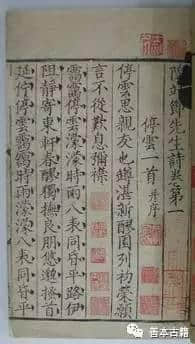 陶靖節先生詩卷第一
停雲一首 并序
停雲思親友也罇湛新醪園列初榮願
言不從歎息彌襟
靄靄停雲濛濛時雨八表同昏平路伊
阻靜寄東軒春醪獨撫良朋悠邈搔首
延佇停雲靄靄時雨濛濛八表同昏平
善本古籍